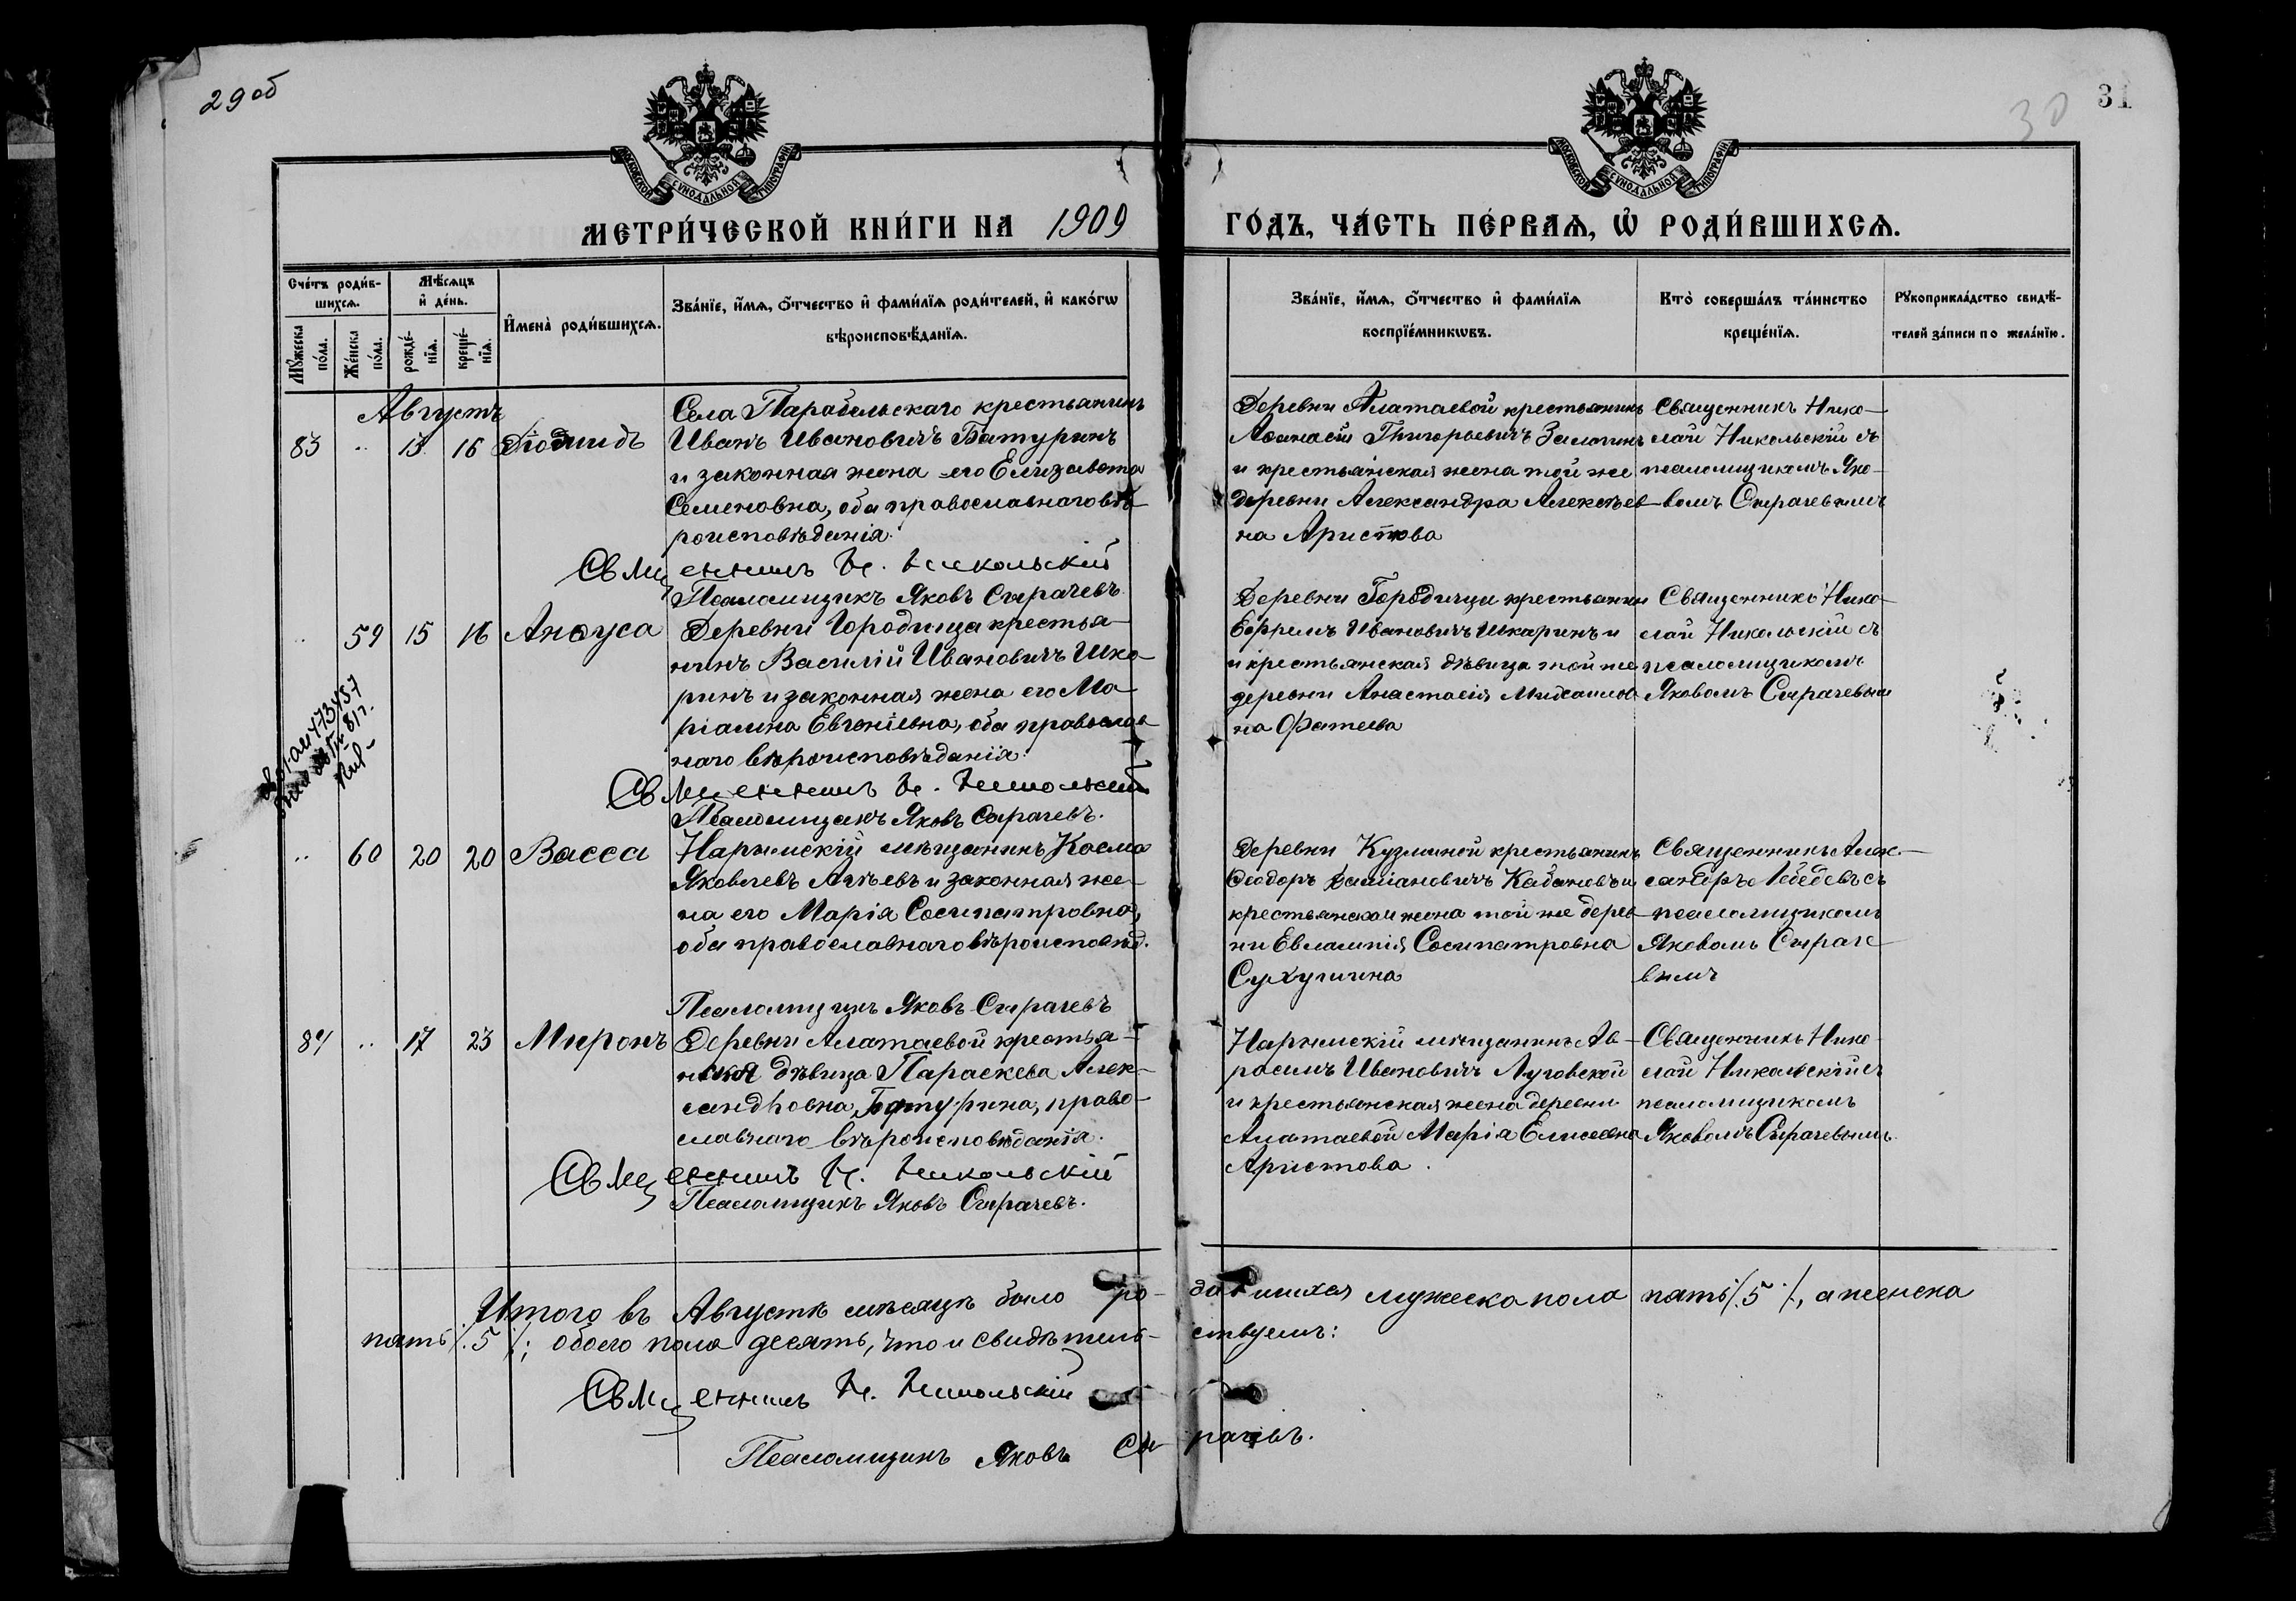 29 об
30
31
МОСКОВСКОЙ СѴНОДАЛЬНОЙ ТИПОГРАФІИ
МОСКОВСКОЙ СѴНОДАЛЬНОЙ ТИПОГРАФІИ
МЕТРИ́ЧЕСКОЙ КНИ́ГИ НА 1909
ГО́ДЪ, ЧА́СТЬ ПЕ́РВАѦ, Ѡ҆ РОДИ́ВШИХСѦ.
Сче́тъ роди́в-
шихсѧ.
Мѹ́жеска
по́ла.
Же́нска
по́ла.
Мѣ́сѧцъ
и҆ де́нь.
рожде́-
нїѧ.
креще́-
нїѧ.
И҆мена̀ роди́вшихсѧ.
Зва́нїе, и҆́мѧ, ѻ҆́тчество и҆ фами́лїѧ роди́телей, и҆ како́гѡ
вѣроисповѣ́данїѧ.
Зва́нїе, и҆́мѧ, ѻ҆́тчество и҆ фами́лїѧ
воспрїе́мникѡвъ.
Кто̀ соверша́лъ та́инство
креще́нїѧ.
Рѹкоприкла́дство свидѣ́-
телей за́писи по жела́нїю.
Августъ
83 .. 13 16 Діомидъ
Села Парабельскаго крестьянинъ
Иванъ Ивановичъ Батуринъ
и законная жена его Елизавета
Семеновна, оба православнаго вѣ-
роисповѣданія.
Священникъ Н. Никольскій
Псаломщикъ Яковъ Сырачевъ.
Деревни Алатаевой крестьянинъ
Аѳанасій Григорьевичъ Залогинъ
и крестьянская жена той же
деревни Александра Алексѣев-
на Аристова
Священникъ Нико-
лай Никольскій съ
псаломщикомъ Яко-
вомъ Сырачевымъ
.. 59 15 16 Анѳуса
Деревни Городища крестья-
нинъ Василій Ивановичъ Шка-
ринъ и законная жена его Ма-
ріамна Евгеніевна, оба православ-
наго вѣроисповѣданія.
Священникъ Н. Никольскій
Псаломщикъ Яковъ Сырачевъ.
Деревни Городища крестьянин
Ефремъ Ивановичъ Шкаринъ и
и крестьянская дѣвица той же
деревни Анастасія Михаилов
на Фатеева
Священникъ Нико-
лай Никольскій съ
псаломщикомъ
Яковомъ Сырачевым
.. 60 20 20 Васса
Нарымскій мѣщанинъ Косма
Яковлевъ и законная же-
на его Марія Сосипатровна,
оба православнаго вѣроисповѣд.
Псаломщикъ Яковъ Сырачевъ
Деревни Кузминой крестьянинъ
Ѳеодоръ Даміановичъ Кабановъ и
крестьянская жена той же дерев-
ни Евлампія Сосипатровна
Сухушина
Священникъ Алек-
сандръ Лебедевъ съ
псаломщикомъ
Яковомъ Сыраче-
вымъ
84 .. 17 23 Миронъ
Деревни Алатаевой крестья-
нская дѣвица Параскева Алек-
сандровна Батурина, право-
славнаго вѣроисповѣданія.
Священникъ Н. Никольскій
Псаломщикъ Яковъ Сырачевъ.
Нарымскій мѣщанинъ Ав-
раамъ Ивановичъ Луговской
и крестьянская жена деревни
Алатаевой Марія Елисеевна
Аристова.
Священникъ Нико
лай Никольскій съ
псаломщикомъ
Яковомъ Сырачевымъ.
Итого въ Августѣ мѣсяцѣ было ро- дившихся мужеска пола пять /.5./, а женска
пять /.5./; обоего пола десять, что и свидѣтель- ствуемъ:
Священникъ Н. Никольскій
Псаломщикъ Яковъ Сы- рачевъ.